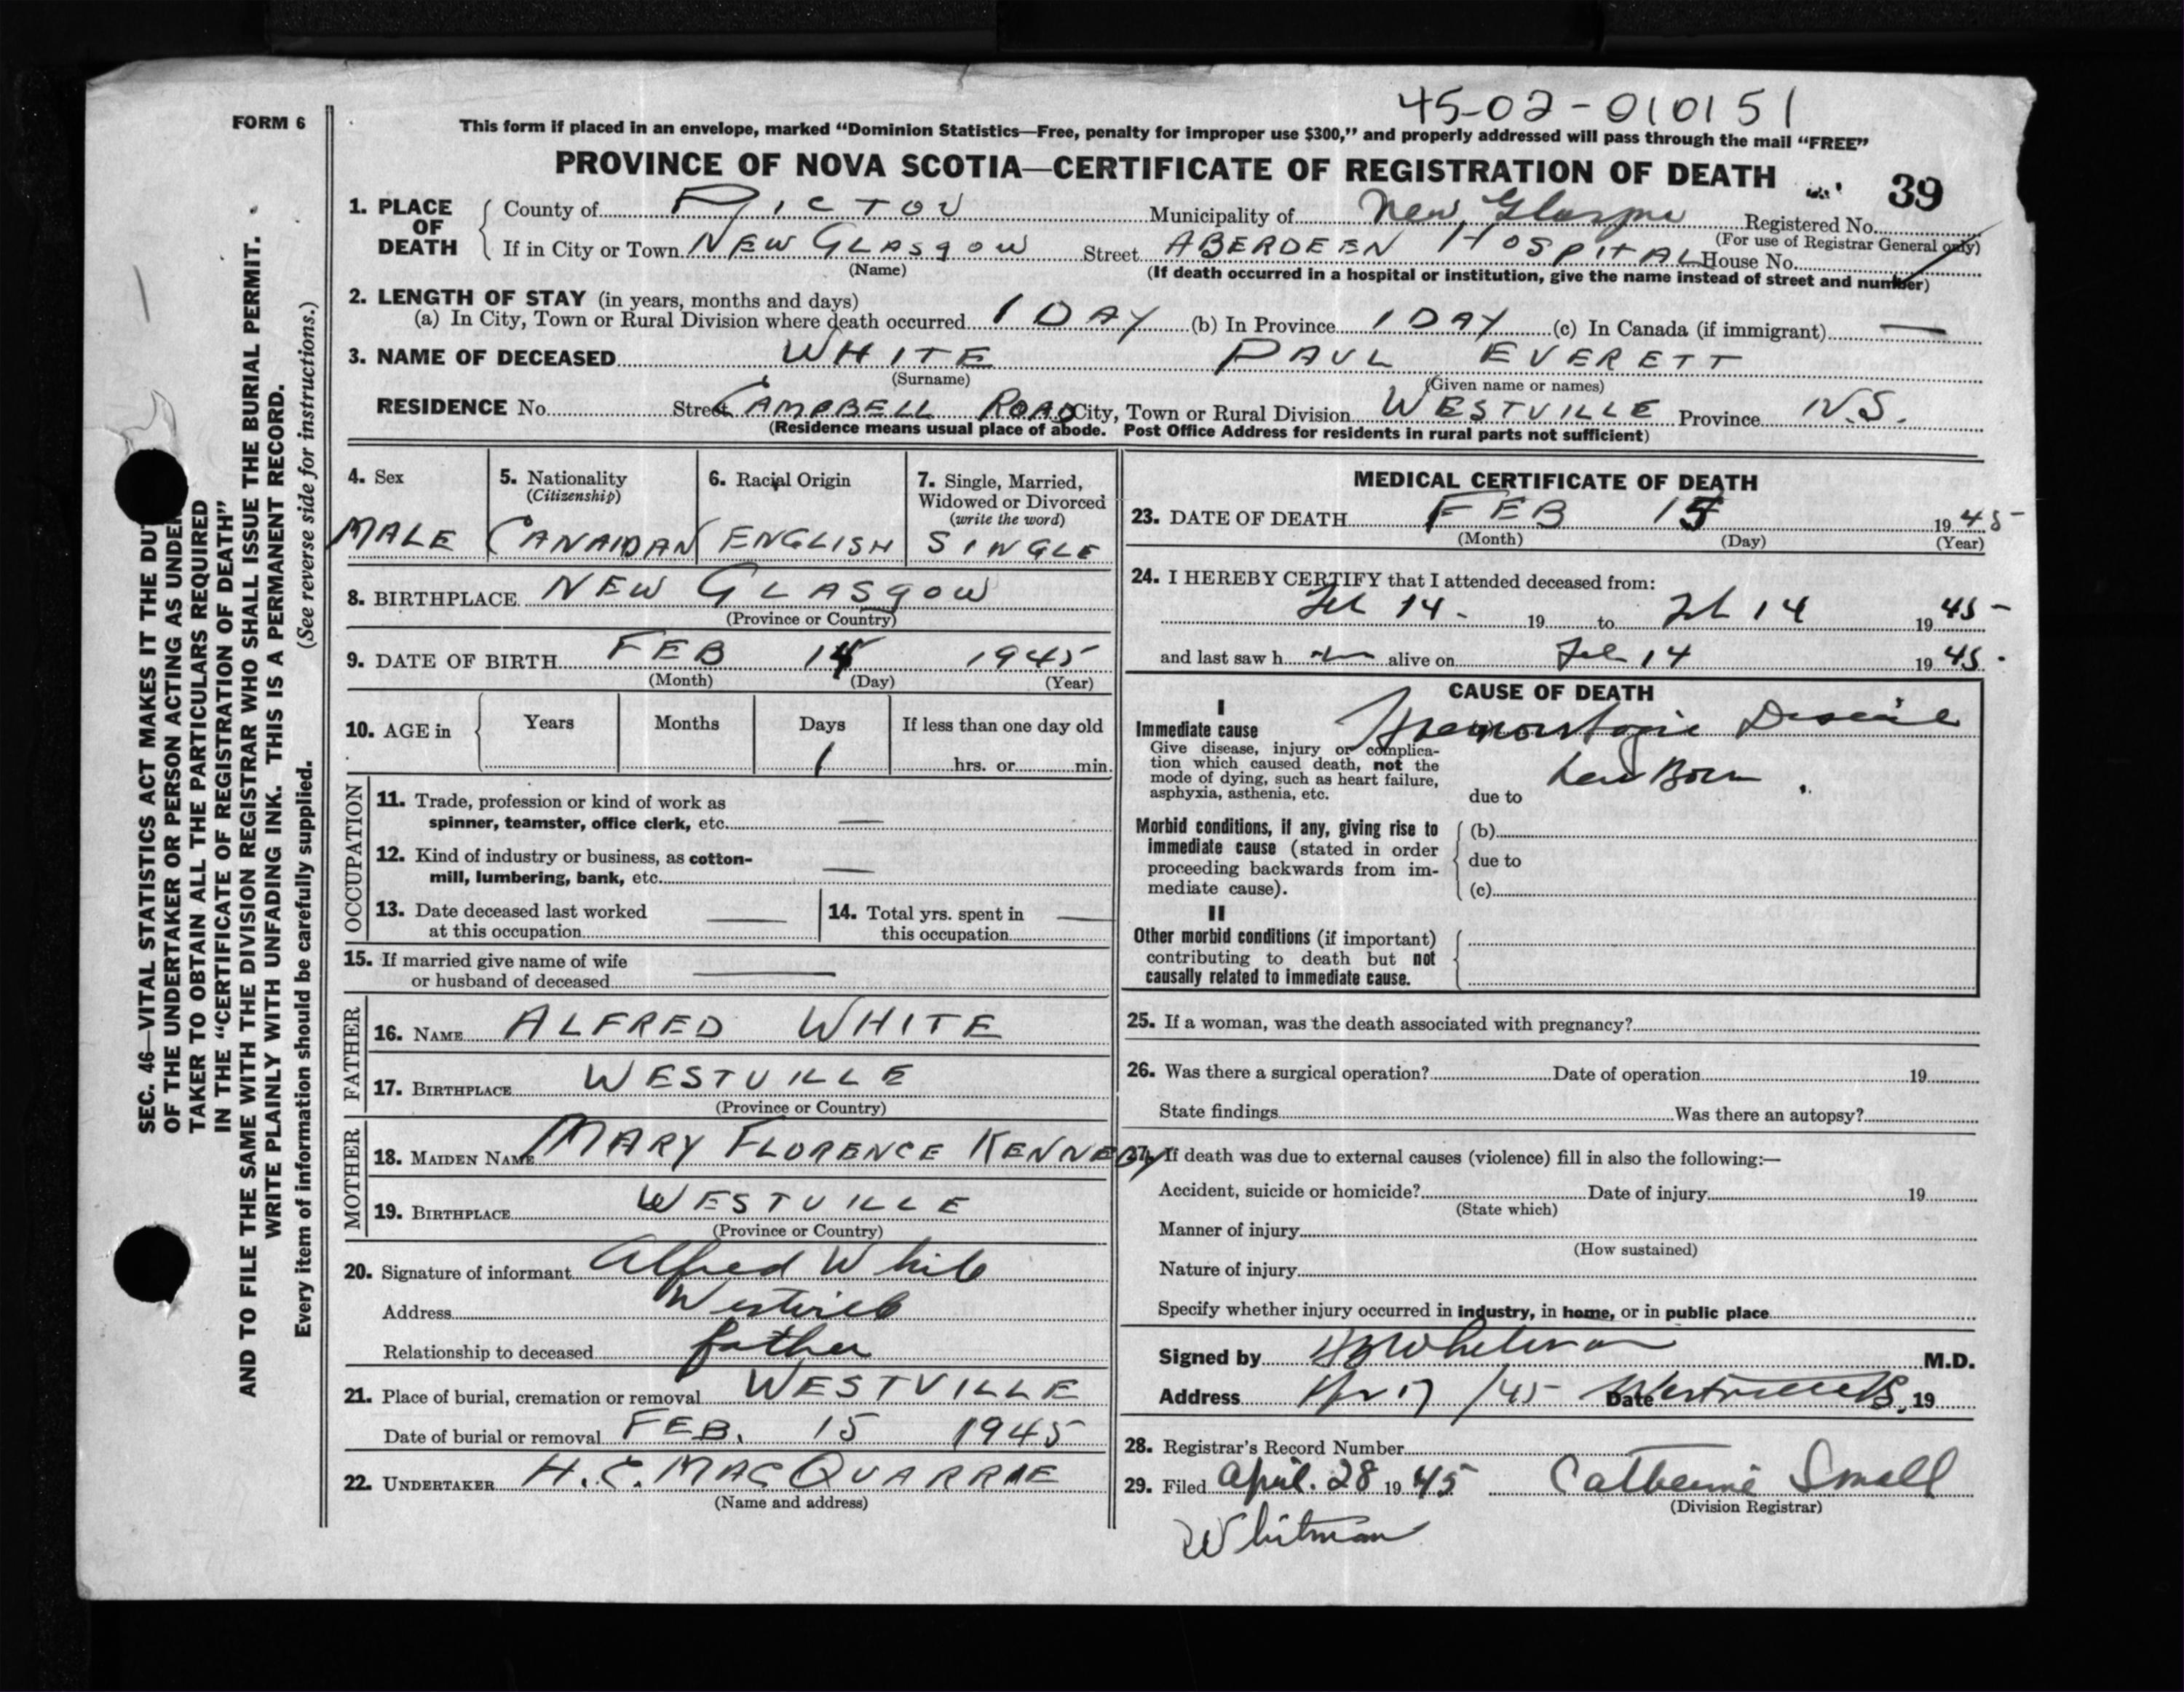 45-02-010151
FORM 6
This form if placed in an envelope, marked "Dominion Statistics—Free, penalty for improper use $300," and properly addressed will pass through the mail "FREE"
PROVINCE OF NOVA SCOTIA—CERTIFICATE OF REGISTRATION OF DEATH
39
1. PLACE OF DEATH
County of PICTOU Municipality of New Glasgow Registered No.
(For use of Registrar General only)
If in City or Town NEW GLASGOW Street ABERDEEN HOSPITAL House No.
(Name) (If death occurred in a hospital or institution, give the name instead of street and number)
2. LENGTH OF STAY (in years, months and days)
(a) In City, Town or Rural Division where death occurred 1 DAY (b) In Province 1 DAY (c) In Canada (if immigrant) —
3. NAME OF DECEASED WHITE PAUL EVERETT
(Surname) (Given name or names)
RESIDENCE No. Street CAMPBELL ROAD City, Town or Rural Division WESTVILLE Province N.S.
(Residence means usual place of abode. Post Office Address for residents in rural parts not sufficient)
4. Sex
MALE
5. Nationality
(Citizenship)
CANAIDAN
6. Racial Origin
ENGLISH
7. Single, Married,
Widowed or Divorced
(write the word)
SINGLE
8. BIRTHPLACE NEW GLASGOW
(Province or Country)
9. DATE OF BIRTH FEB 14 1945
(Month) (Day) (Year)
10. AGE in Years Months Days If less than one day old
1 hrs. or min.
OCCUPATION
11. Trade, profession or kind of work as
spinner, teamster, office clerk, etc. —
12. Kind of industry or business, as cotton-
mill, lumbering, bank, etc. —
13. Date deceased last worked
at this occupation —
14. Total yrs. spent in
this occupation —
15. If married give name of wife
or husband of deceased —
FATHER
16. NAME ALFRED WHITE
17. BIRTHPLACE WESTVILLE
(Province or Country)
MOTHER
18. MAIDEN NAME MARY FLORENCE KENNEDY
19. BIRTHPLACE WESTVILLE
(Province or Country)
20. Signature of informant Alfred White
Address Westville
Relationship to deceased father
21. Place of burial, cremation or removal WESTVILLE
Date of burial or removal FEB. 15 1945
22. UNDERTAKER H.C. MACQUARRIE
(Name and address)
MEDICAL CERTIFICATE OF DEATH
23. DATE OF DEATH FEB 15 1945
(Month) (Day) (Year)
24. I HEREBY CERTIFY that I attended deceased from:
Feb 14 - 19 to Feb 14 1945
and last saw h im alive on Feb 14 1945
CAUSE OF DEATH
I
Immediate cause Hemorrhagic Disease
Give disease, injury or complica-
tion which caused death, not the
mode of dying, such as heart failure,
asphyxia, asthenia, etc.
New Born
due to
Morbid conditions, if any, giving rise to
immediate cause (stated in order
proceeding backwards from im-
mediate cause).
(b)
due to
(c)
II
Other morbid conditions (if important)
contributing to death but not
causally related to immediate cause.
25. If a woman, was the death associated with pregnancy?
26. Was there a surgical operation? Date of operation 19
State findings Was there an autopsy?
27. If death was due to external causes (violence) fill in also the following:—
Accident, suicide or homicide? Date of injury 19
(State which)
Manner of injury
(How sustained)
Nature of injury
Specify whether injury occurred in industry, in home, or in public place
Signed by Whitman M.D.
Address 17/45 Date Westville NS. 19
28. Registrar's Record Number
29. Filed April. 28 1945 Catherine Small
(Division Registrar)
Whitman
SEC. 46—VITAL STATISTICS ACT MAKES IT THE DUTY
OF THE UNDERTAKER OR PERSON ACTING AS UNDER
TAKER TO OBTAIN ALL THE PARTICULARS REQUIRED
IN THE "CERTIFICATE OF REGISTRATION OF DEATH"
AND TO FILE THE SAME WITH THE DIVISION REGISTRAR WHO SHALL ISSUE THE BURIAL PERMIT.
WRITE PLAINLY WITH UNFADING INK. THIS IS A PERMANENT RECORD.
Every item of information should be carefully supplied. (See reverse side for instructions.)